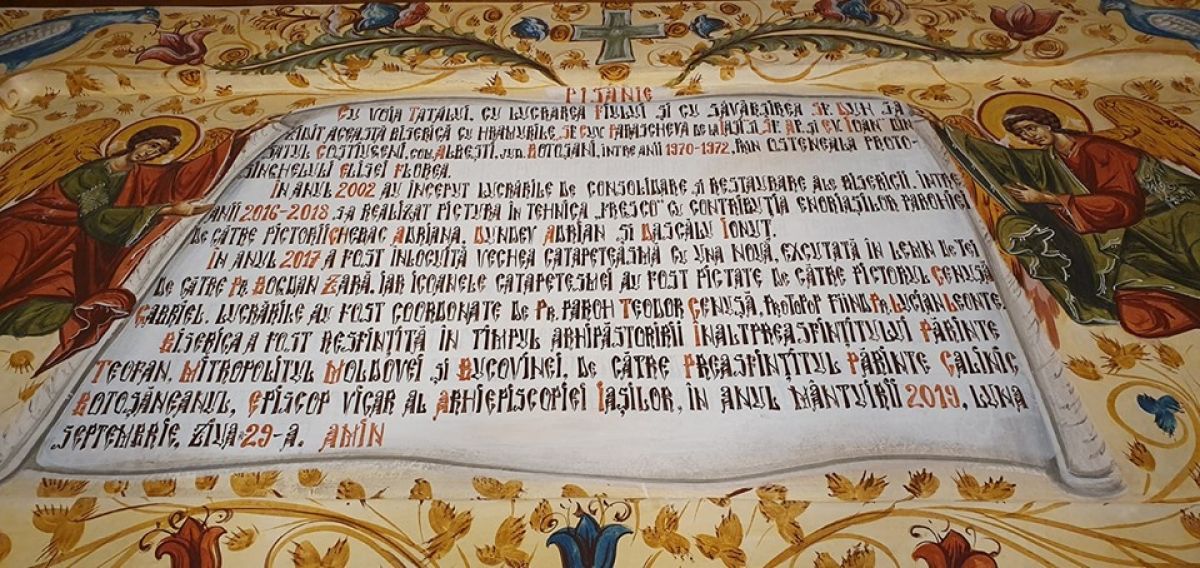 PISANIE
CU VOIA TATĂLUI, CU LUCRAREA FIULUI ȘI CU SĂVÂRȘIREA SF. DUH, S-A
ZIDIT ACEASTĂ BISERICĂ CU HRAMURILE „SF. CUV. PARASCHEVA DE LA IAȘI ȘI SF. AP. ȘI EV. IOAN” DIN
SATUL COSTIUGENI, COM. ALBEȘTI, JUD. BOTOȘANI, ÎNTRE ANII 1970-1972, PRIN OSTENEALA PROTO-
SINGHELULUI ELISEI FLOREA.
ÎN ANUL 2002 AU ÎNCEPUT LUCRĂRILE DE CONSOLIDARE ȘI RESTAURARE ALE BISERICII. ÎNTRE
ANII 2016-2018, S-A REALIZAT PICTURA ÎN TEHNICA „FRESCO” CU CONTRIBUȚIA ENORIAȘILOR PAROHIEI
DE CĂTRE PICTORII GHERAC ADRIANA, DUNDEV ADRIAN ȘI DASCĂLU IONUȚ.
ÎN ANUL 2017 A FOST ÎNLOCUITĂ VECHEA CATAPETEASMĂ CU UNA NOUĂ, EXCUTATĂ ÎN LEMN DE TEI
DE CĂTRE PR. BOGDAN ZARĂ, IAR ICOANELE CATAPETESMEI AU FOST PICTATE DE CĂTRE PICTORUL CENUȘĂ
GABRIEL. LUCRĂRILE AU FOST COORDONATE DE PR. PAROH TEODOR CENUȘĂ, PROTOPOP FIIND PR. LUCIAN LEONTE.
BISERICA A FOST RESFINȚITĂ ÎN TIMPUL ARHIPĂSTORIRII ÎNALTPREASFINȚITULUI PĂRINTE
TEOFAN, MITROPOLITUL MOLDOVEI ȘI BUCOVINEI, DE CĂTRE PREASFINȚITUL PĂRINTE CALINIC
BOTOȘĂNEANUL, EPISCOP VICAR AL ARHIEPISCOPIEI IAȘILOR, ÎN ANUL MÂNTUIRII 2019, LUNA
SEPTEMBRIE, ZIUA 29-A. AMIN